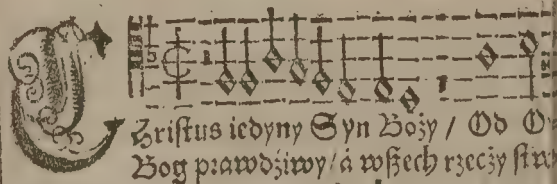 Christus iedyny Syn Boży / Od
Bog prawdźiwy / á wßech rzecży